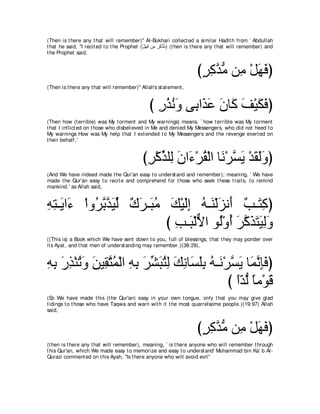 (Then is there any that will remember)" Al-Bukhari collected a similar Hadith from `Abdullah
that he said, "I recited to the Prophet (فَهَلْ مِن مُّذَكِرٍ) (then is there any that will remember) and
the Prophet said,
(فَهَلْ مِن مُّدَّكِرٍ)
(Then is there any that will remember)" Allah's statement,
(فَكَيْفَ كَانَ عَذَابِى وَنُذُرِ )
(Then how (terrible) was My torment and My warnings) means, `how terrible was My torment
that I inflicted on those who disbelieved in Me and denied My Messengers, who did not heed to
My warnings How was My help that I extended to My Messengers and the revenge exerted on
their behalf,'
(وَلَقَدْ يَسَّرْنَا الْقُرْءَانَ لِلذِّكْرِ)
(And We have indeed made the Qur'an easy to understand and remember); meaning, `We have
made the Qur'an easy to recite and comprehend for those who seek these traits, to remind
mankind,' as Allah said,
(كِتَـبٌ أَنزَلْنَـهُ إِلَيْكَ مُبَـرَكٌ لِّيَدَّبَّرُواْ ءَايَـتِهِ
وَلِيَتَذَكَّرَ أُوْلُو الاٌّلْبَـبِ )
((This is) a Book which We have sent down to you, full of blessings, that they may ponder over
its Ayat, and that men of understanding may remember.)(38:29),
(فَإِنَّمَا يَسَّرْنَـهُ بِلَسَانِكَ لِتُبَشِّرَ بِهِ الْمُتَّقِينَ وَتُنْذِرَ بِهِ
قَوْماً لُّدّاً )
(So We have made this (the Qur'an) easy in your own tongue, only that you may give glad
tidings to those who have Taqwa and warn with it the most quarrelsome people.)(19:97) Allah
said,
(فَهَلْ مِن مُّدَّكِرٍ)
(then is there any that will remember), meaning, `is there anyone who will remember through
this Qur'an, which We made easy to memorize and easy to understand' Muhammad bin Ka`b Al-
Qurazi commented on this Ayah, "Is there anyone who will avoid evil"